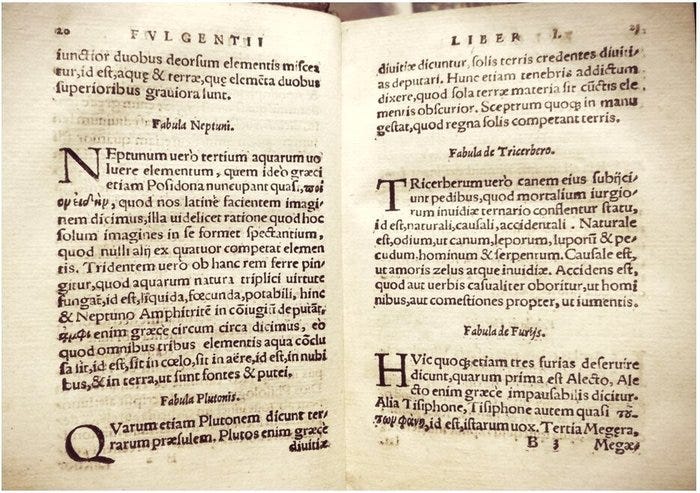 20 FVLGENTII
iunctior duobus deorsum elementis miscea
tur, id est, aquę & terræ, quę elemēta duobus
superioribus grauiora sunt.
Fabula Neptuni.
NEptunum uero tertium aquarum uo
luere elementum, quem ideo græci
etiam Posidona nuncupant quasi, ποι
quod nos latine facientem imagi
nem dicimus, illa uidelicet ratione quod hoc
solum imagines in se formet spectantium,
quod nulli alij ex quatuor competat elemen
tis. Tridentem uero ob hanc rem ferre pin
gitur, quod aquarum natura triplici uirtute
fungat, id est, liquida, fœcunda, potabili, hinc
& Neptuno Amphitritē in cōiugiū deputāt,
enim græce circum circa dicimus, eo
quod omnibus tribus elementis aqua cōclu
sa sit, id est, sit in cœlo, sit in aëre, id est, in nubi
bus, & in terra, ut sunt fontes & putei.
Fabula Plutonis.
QVarum etiam Plutonem dicunt ter,
rarum præsulem. Plutos enim græce
diuitiæ
LIBER I.
diuitiæ dicuntur, solis terris credentes diuiti,
as deputari. Hunc etiam tenebris addictum
dixere, quod sola terræ materia sit cūctis ele
mentis obscurior. Sceptrum quoq; in manu
gestat, quod regna solis competant terris.
Fabula de Tricerbero.
TRicerberum uero canem eius subijci,
unt pedibus, quod mortalium iurgio,
rum inuidiæ ternario conflentur statu,
id est, naturali, causali, accidentali. Naturale
est, odium, ut canum, leporum, luporū & pe,
cudum, hominum & serpentum. Causale est,
ut amoris zelus atque inuidiæ. Accidens est,
quod aut uerbis casualiter oboritur, ut homi
nibus, aut comestiones propter, ut iumentis.
Fabula de Furijs.
HVic quoq; etiam tres furias deseruire
dicunt, quarum prima est Alecto, Ale
cto enim græce impausabilis dicitur.
Alia Tisiphone, Tisiphone autem quasi
id est, istarum uox. Tertia Megera,
B 3 Megæ,